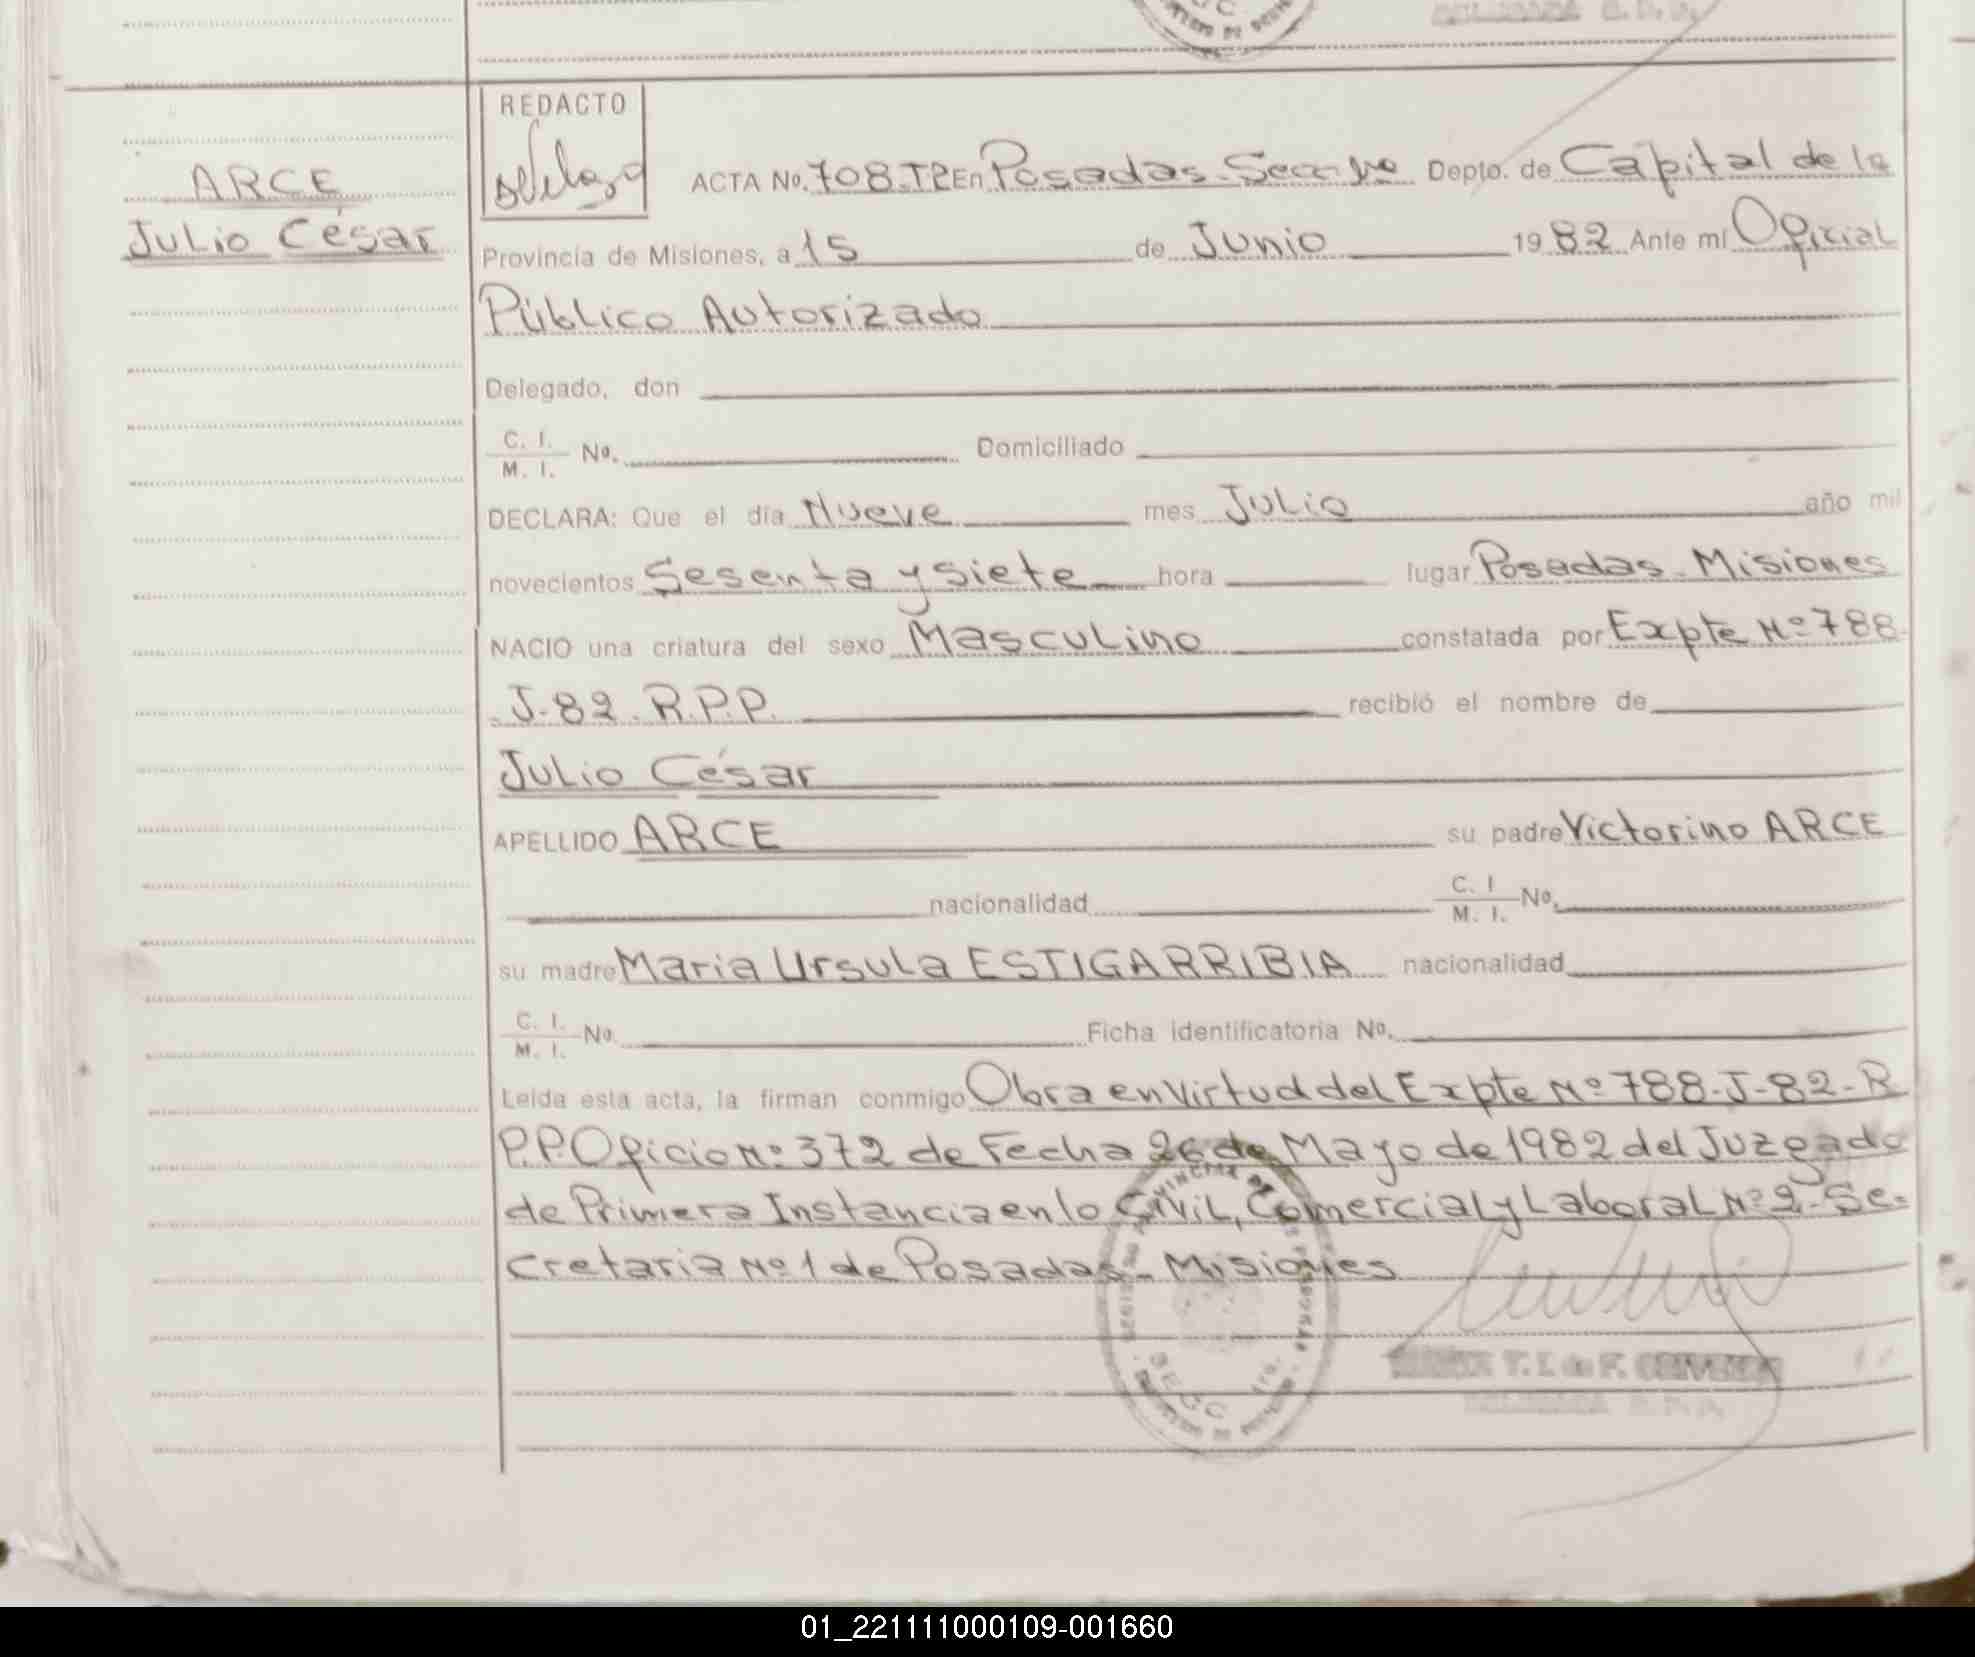 ARCE
Julio César
REDACTO
ACTA No. 708.T2 En Posadas. Depto. de Capital de la
Provincia de Misiones, a 15 de Junio 1982 Ante mi Oficial
Público Autorizado
Delegado, don
C. I.
M. I. No. Domiciliado
DECLARA: Que el día Nueve mes Julio año mil
novecientos Sesenta y siete hora lugar Posadas. Misiones
NACIO una criatura del sexo Masculino constatada por Expte Nº 788-
J-82. R.P.P. recibió el nombre de
Julio César
APELLIDO ARCE su padre Victorino ARCE
nacionalidad C. I.
M. I. No.
su madre Maria Ursula ESTIGARRIBIA nacionalidad
C. I.
M. I. No. Ficha identificatoria No.
Leída esta acta, la firman conmigo Obra en virtud del Expte Nº 788-J-82-R
P.P. Oficio Nº 372 de Fecha 26 de Mayo de 1982 del Juzgado
de Primera Instancia en lo Civil, Comercial y Laboral Nº 2- Se-
cretaria Nº 1 de Posadas - Misiones
01_221111000109-001660